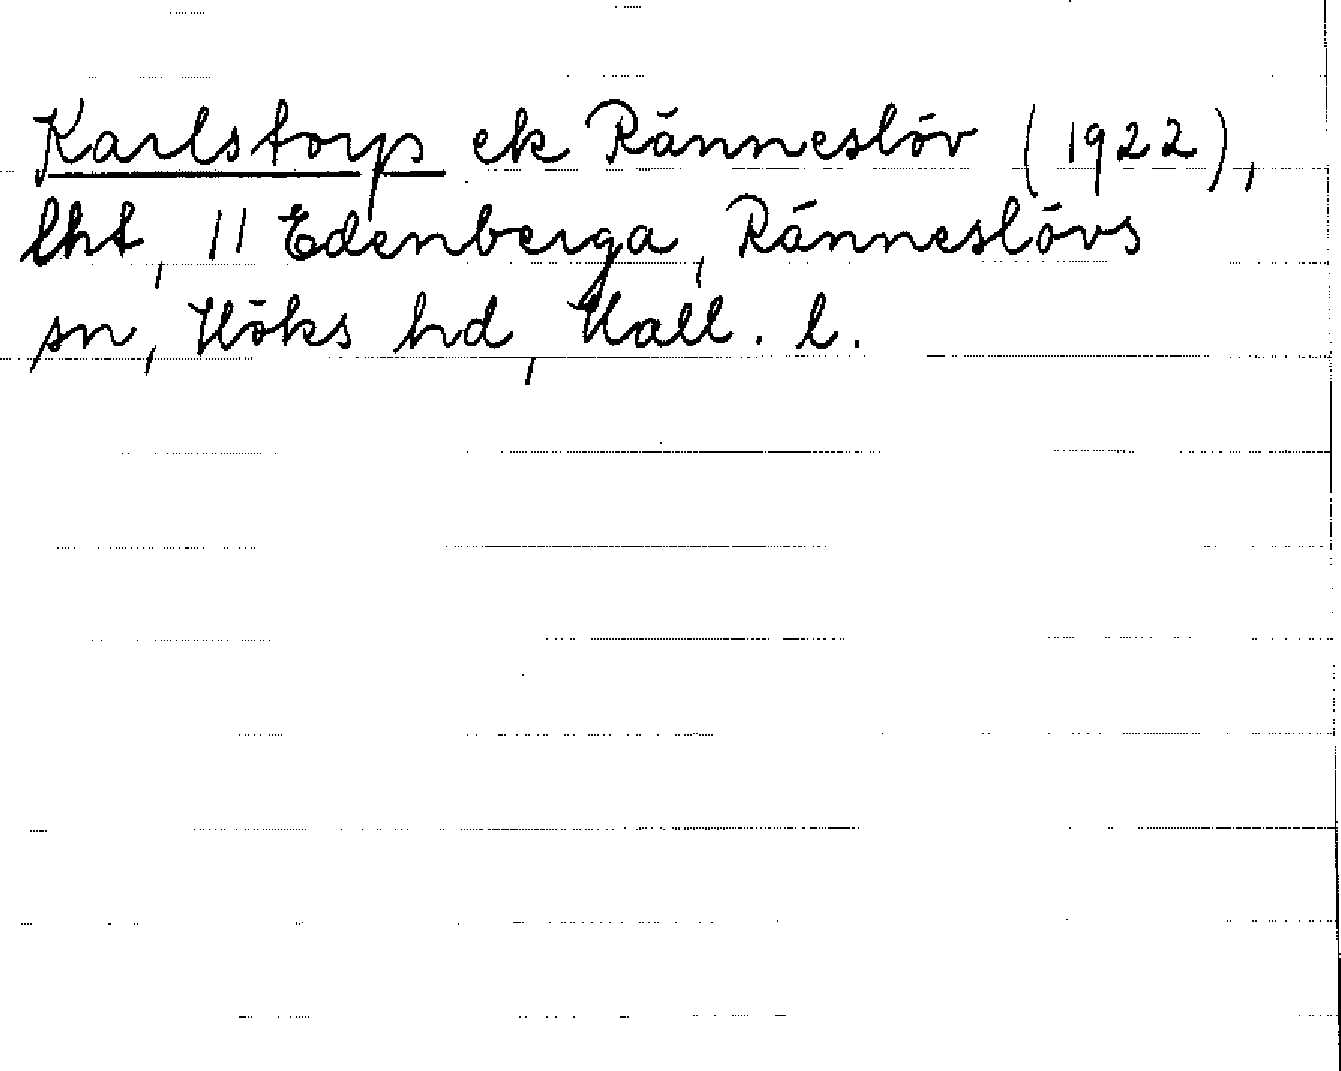 Karlstorp ek Ränneslöv (1922),
lht, 11 Edenberga, Ränneslövs
sn, Höks hd, Hall. l.